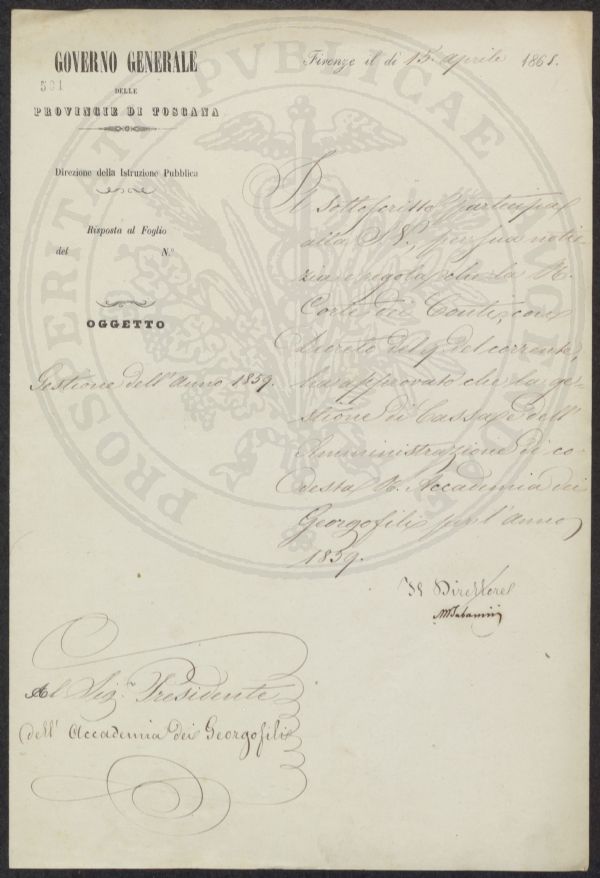 GOVERNO GENERALE
501
DELLE
PROVINCIE DI TOSCANA
Direzione della Istruzione Pubblica
Risposta al Foglio
del N.º
OGGETTO
Gestione dell'Anno 1859.
Firenze il dì 15 aprile 1861.
Il sottoscritto partecipa
alla S. V., per sua noti-
zia e regola che la R.
Corte dei Conti, con
Decreto del 9 del corrente,
ha approvato che la ge-
stione di Cassa dell'
Amministrazione di co-
desta R. Accademia dei
Georgofili per l'anno
1859.
Il Direttore
Al Sig.r Presidente
dell' Accademia dei Georgofili
PROSPERITATI PVBLICAE